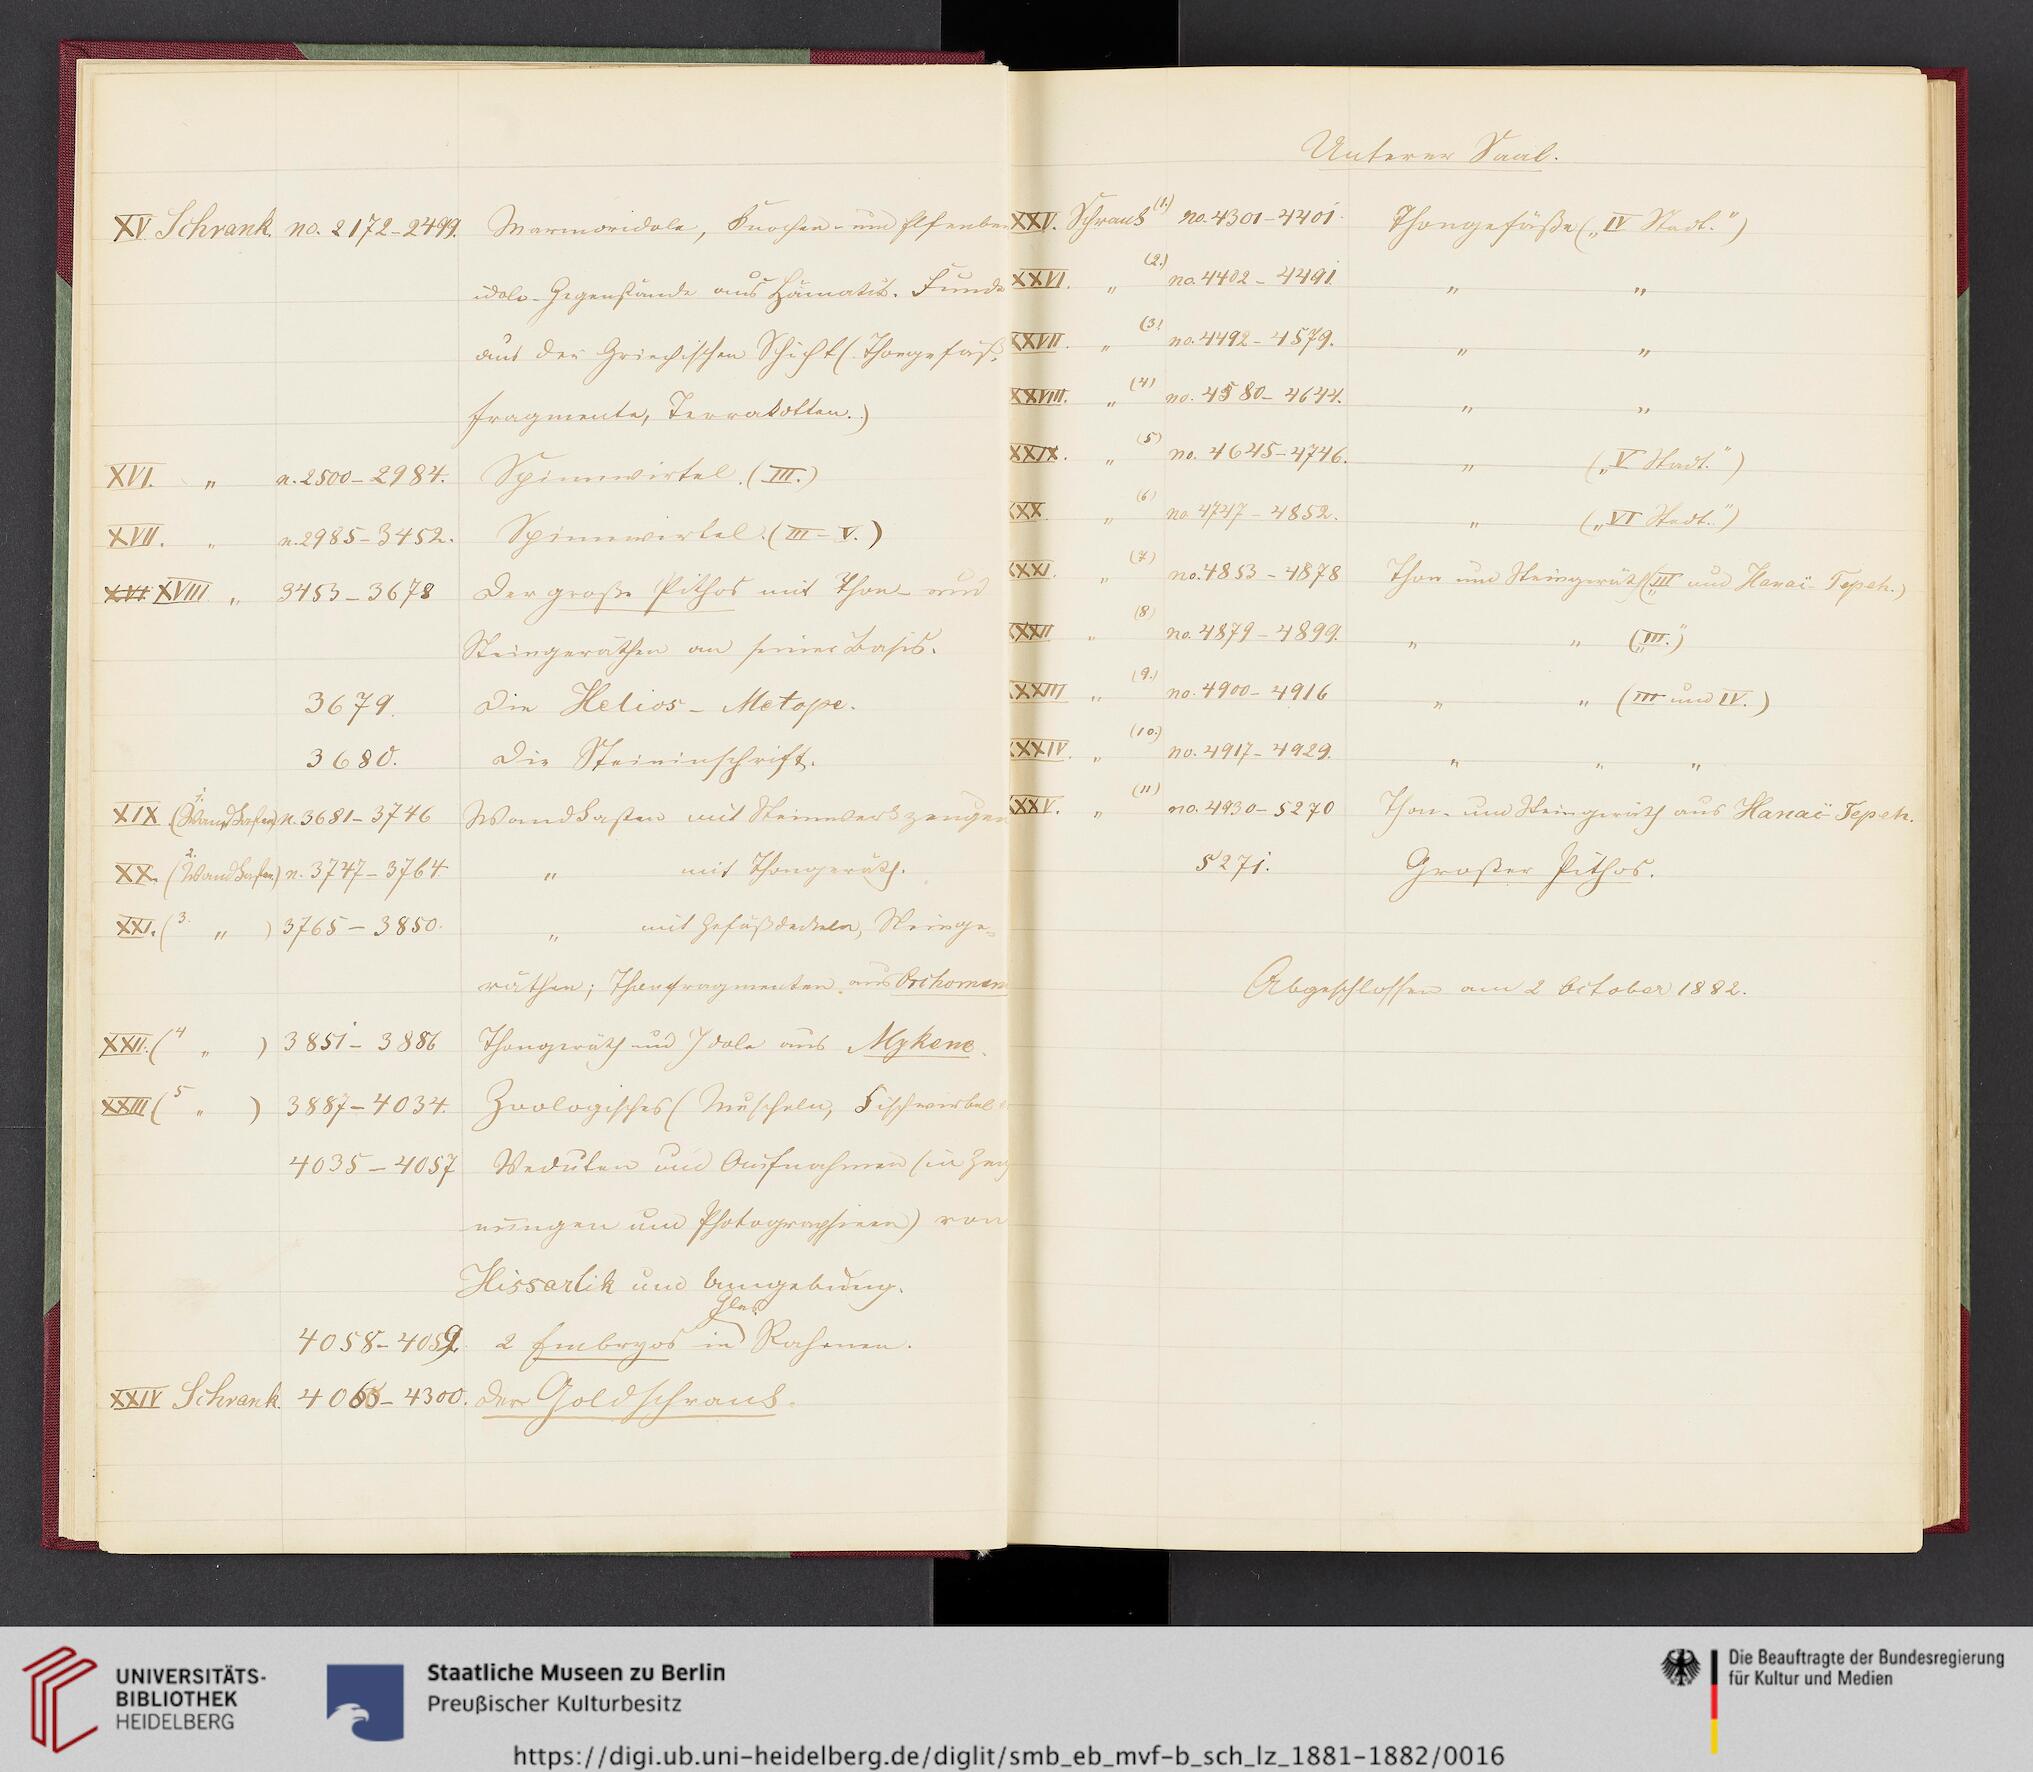 XV. Schrank. no. 2172-2499. Marmoridole, Knochen- und Elfenbein
idole. Gegenstände aus Hämatit. Funde
aus der Griechischen Schicht (Thongefäß-
fragmente, Terrakotten.)
XVI. " n. 2500-2984. Spinnwirtel. (III.)
XVII. " n. 2985-3452. Spinnwirtel. (III-V.)
XVI XVIII " 3453-3678 Der große Pithos mit Thon- und
Steingeräthen an seiner Basis.
3679. Die Helios-Metope.
3680. Die Steininschrift.
XIX (1. Wandkasten) n. 3681-3746 Wandkasten mit Steinwerkzeugen
XX. (2. Wandkasten) n. 3747-3764 " mit Thongeräth.
XXI. (3. " ) 3765-3850. " mit Gefäßdeckeln, Steinge-
räthen; Thonfragmenten aus Orchomen
XXII. (4 " ) 3851-3886 Thongeräth und Idole aus Mykene.
XXIII (5 " ) 3887-4034. Zoologisches (Muscheln, Fischwirbel
4035-4057 Veduten und Aufnahmen (in Zeich
nungen und Photographieen) von
Hissarlik und Umgebung.
Glas
4058-4059. 2 Embryos in Rahmen.
XXIV Schrank. 4060-4300. Der Goldschrank.
Unterer Saal.
XXV. Schrank (1.) no. 4301-4401. Thongefäße („IV Stadt.")
XXVI. " (2.) no. 4402-4491. " "
XXVII. " (3) no. 4492-4579. " "
XXVIII. " (4) no. 4580-4644. " "
XXIX. " (5) no. 4645-4746. " („V Stadt.")
XXX " (6) no. 4747-4852. " („VI Stadt.")
XXXI. " (7) no. 4853-4878 Thon und Steingeräth („III" und Hanaï-Tepeh.)
XXXII " (8) no. 4879-4899. " " („III.")
XXXIII " (9.) no. 4900-4916 " " (III und IV.)
XXXIV. " (10.) no. 4917-4929. " " "
XXXV. " (11) no. 4930-5270 Thon- und Steingeräth aus Hanaï-Tepeh.
5271. Großer Pithos.
Abgeschlossen am 2 October 1882.
UNIVERSITÄTS-
BIBLIOTHEK
HEIDELBERG
Staatliche Museen zu Berlin
Preußischer Kulturbesitz
Die Beauftragte der Bundesregierung
für Kultur und Medien
https://digi.ub.uni-heidelberg.de/diglit/smb_eb_mvf-b_sch_lz_1881-1882/0016